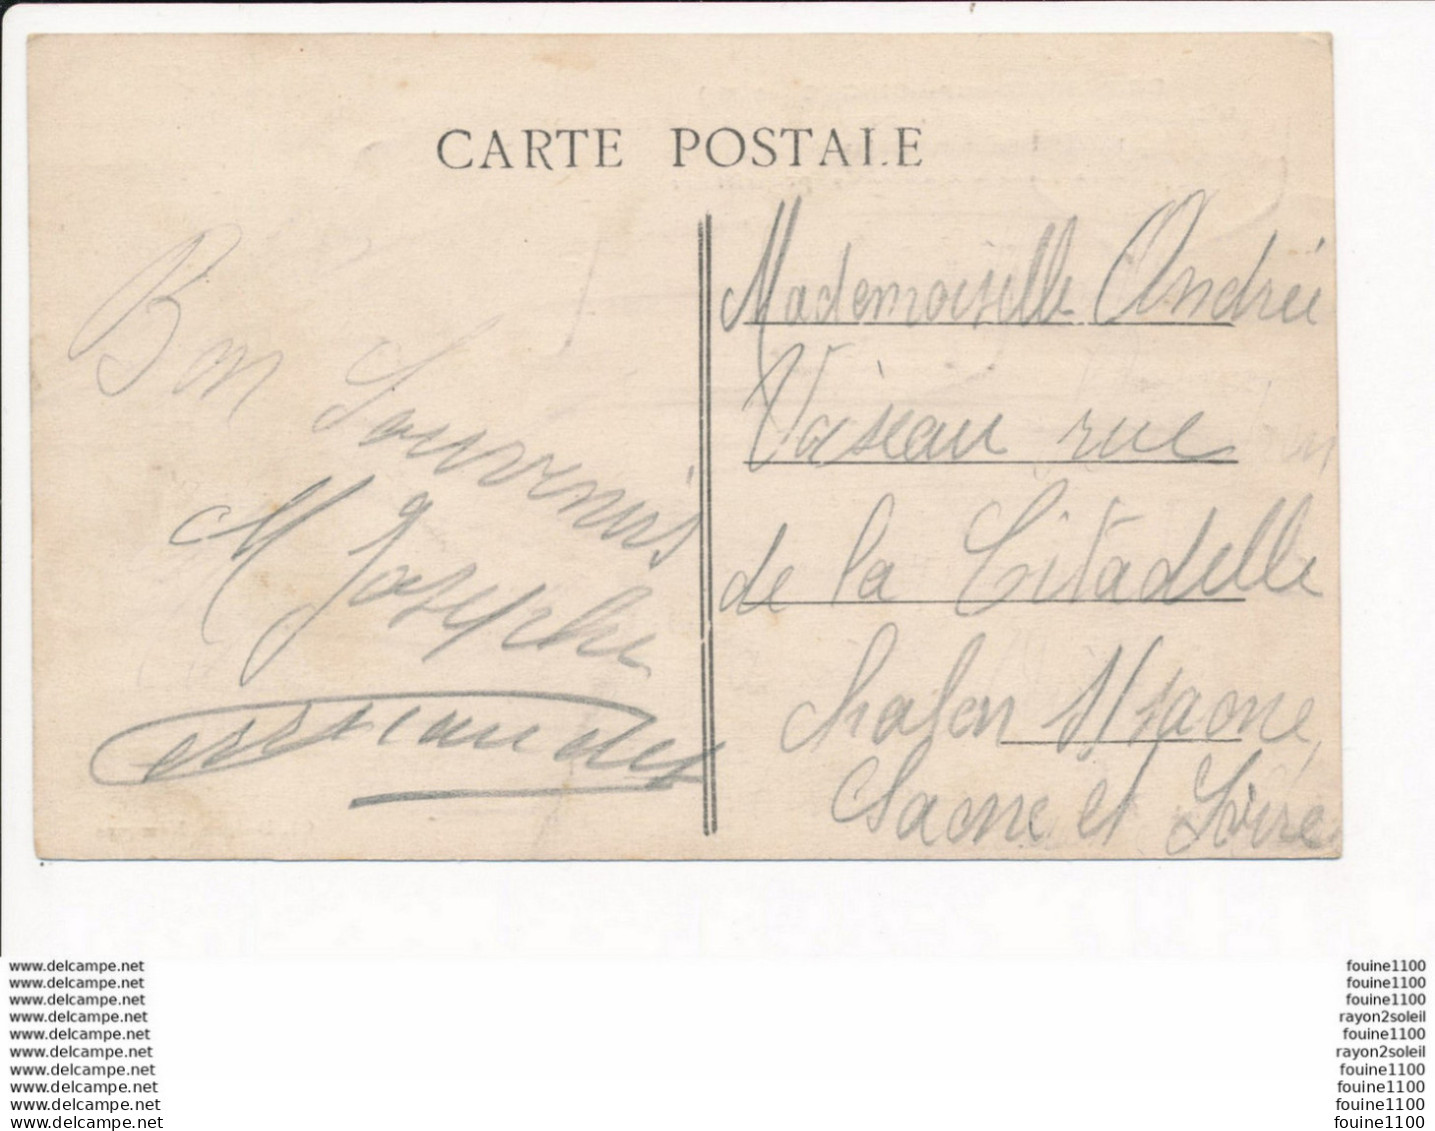 CARTE POSTALE
Bon Souvenirs
M Josephe
Mademoiselle Andrée
Vaiseau rue
de la Citadelle
chalon s/saone
Saone et Loire
www.delcampe.net
www.delcampe.net
www.delcampe.net
www.delcampe.net
www.delcampe.net
www.delcampe.net
www.delcampe.net
www.delcampe.net
www.delcampe.net
www.delcampe.net
fouine1100
fouine1100
fouine1100
rayon2soleil
fouine1100
rayon2soleil
fouine1100
fouine1100
fouine1100
fouine1100